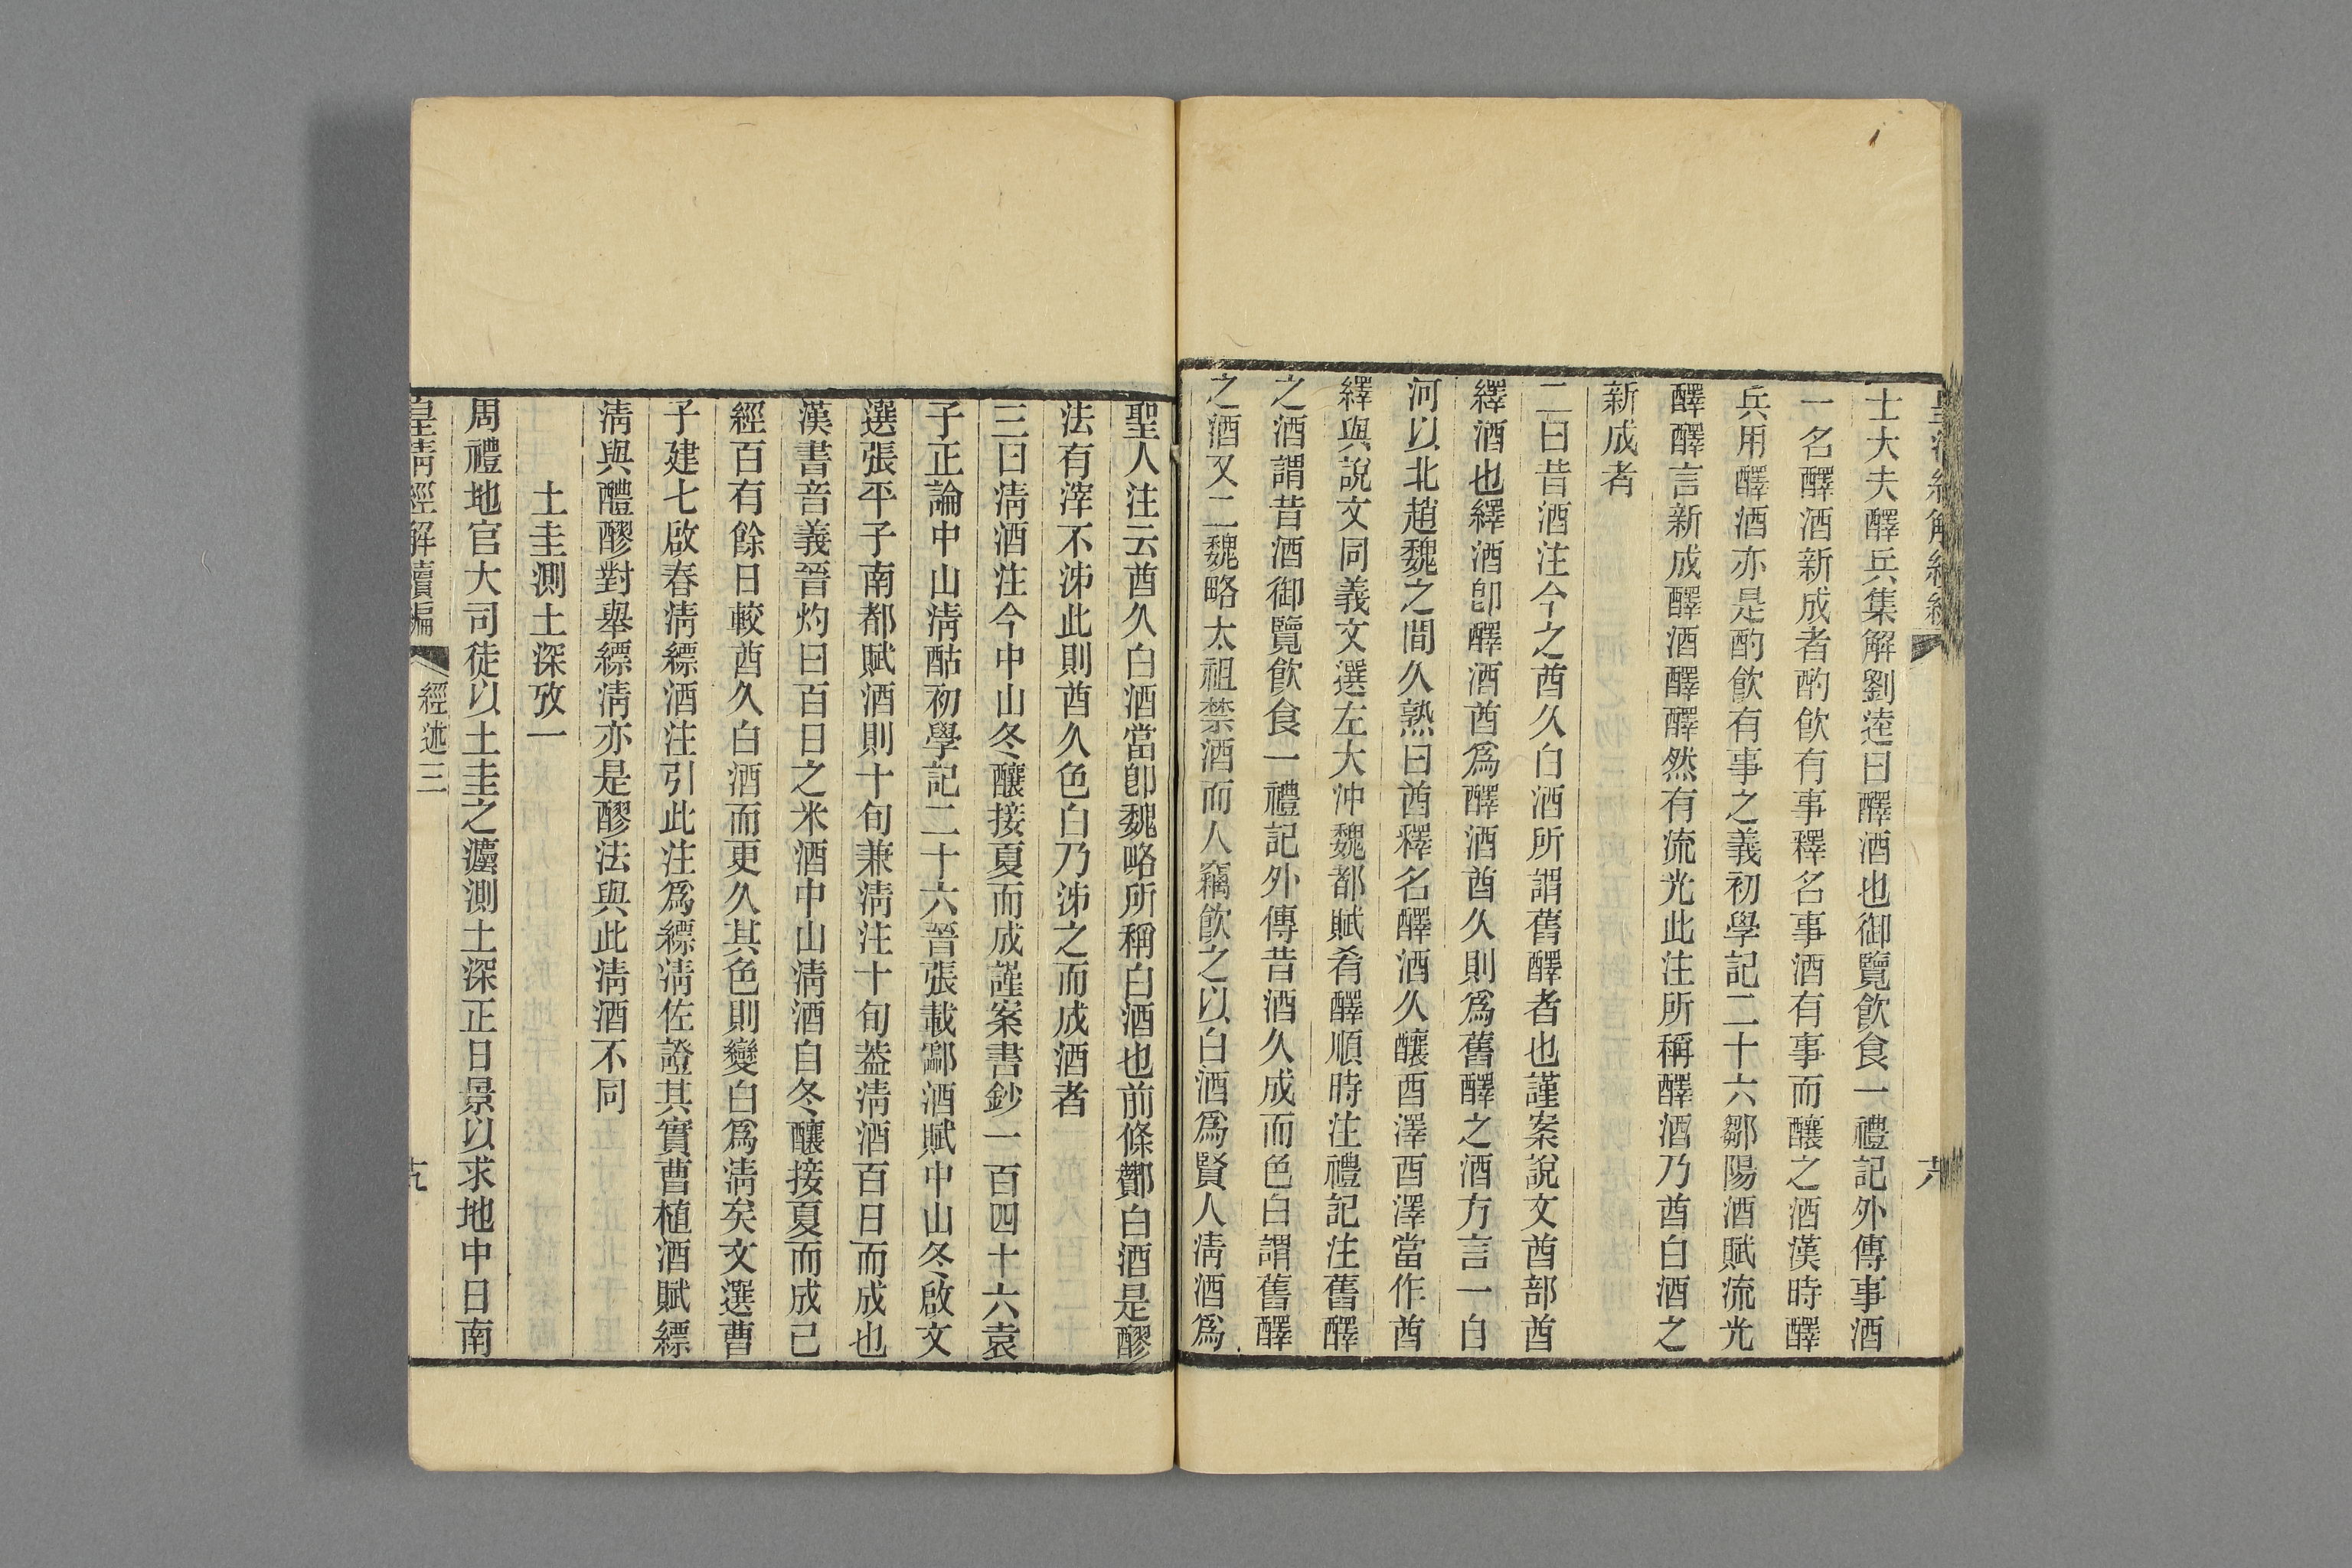 皇清經解續編
士大夫醳兵集解劉逵曰醳酒也御覽飮食一禮記外傳事酒
一名醳酒新成者酌飮有事釋名事酒有事而釀之酒漢時醳
兵用醳酒亦是酌飮有事之義初學記二十六鄒陽酒賦流光
醳醳言新成醳酒醳醳然有流光此注所稱醳酒乃酋白酒之
新成者
二曰昔酒注今之酋久白酒所謂舊醳者也謹案說文酋部酋
繹酒也繹酒卽醳酒酋爲醳酒酋久則爲舊醳之酒方言一自
河以北趙魏之間久熟曰酋釋名醳酒久釀酉澤酉澤當作酋
繹與說文同義文選左大沖魏都賦肴醳順時注禮記注舊醳
之酒謂昔酒御覽飮食一禮記外傳昔酒久成而色白謂舊醳
之酒又二魏略太祖禁酒而人竊飮之以白酒爲賢人淸酒爲
聖人注云酋久白酒當卽魏略所稱白酒也前條酇白酒是醪
法有滓不泲此則酋久色白乃泲之而成酒者
三曰淸酒注今中山冬釀接夏而成謹案書鈔一百四十六袁
子正論中山淸酤初學記二十六晉張載酃酒賦中山冬啟文
選張平子南都賦酒則十旬兼淸注十旬葢淸酒百日而成也
漢書音義晉灼曰百日之米酒中山淸酒自冬釀接夏而成已
經百有餘日較酋久白酒而更久其色則變白爲淸矣文選曹
子建七啟春淸縹酒注引此注爲縹淸佐證其實曹植酒賦縹
淸與醴醪對舉縹淸亦是醪法與此淸酒不同
土圭測土深攷一
周禮地官大司徒以土圭之灋測土深正日景以求地中日南
皇淸經解續編
經述三